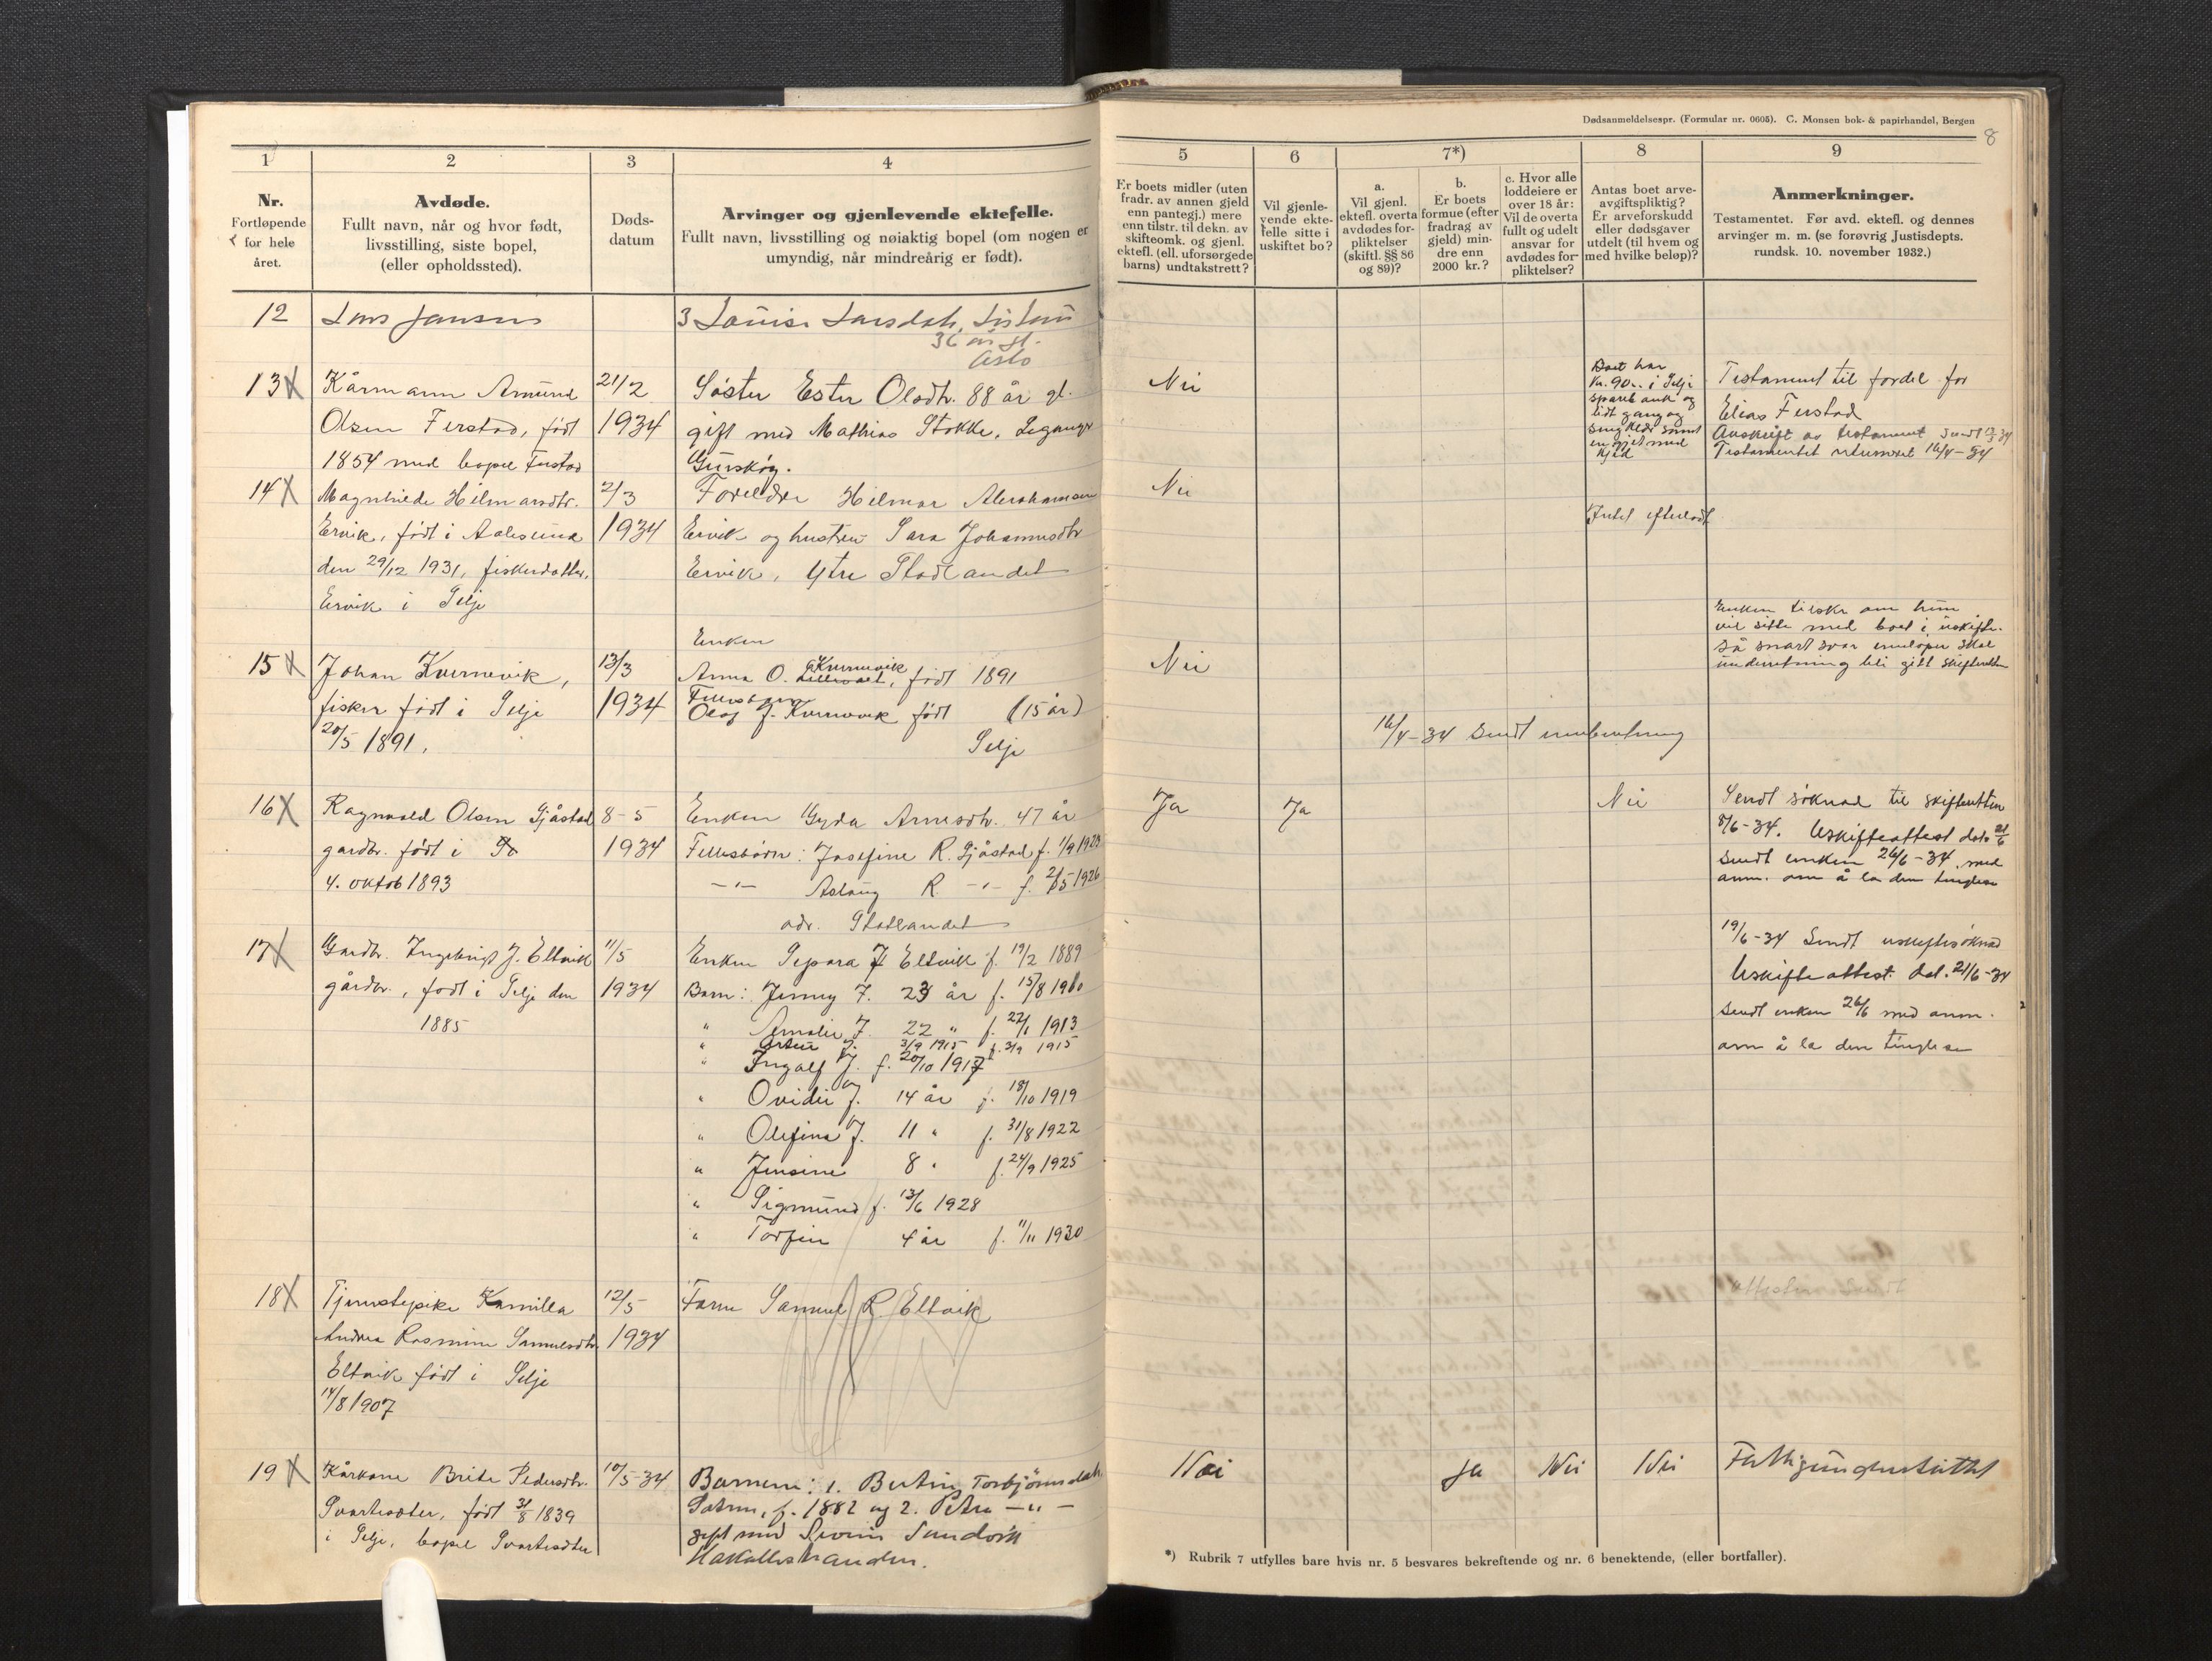 Dødsanmeldelsespr. (Formular nr. 0605). C. Monsen bok- & papirhandel, Bergen
8
1
2
3
4
5
6
7*)
8
9
Nr.
Fortløpende
for hele
året.
Avdøde.
Fullt navn, når og hvor født,
livsstilling, siste bopel,
(eller opholdssted).
Døds-
datum
Arvinger og gjenlevende ektefelle.
Fullt navn, livsstilling og nøiaktig bopel (om nogen er
umyndig, når mindreårig er født).
Er boets midler (uten
fradr. av annen gjeld
enn pantegj.) mere
enn tilstr. til dekn. av
skifteomk. og gjenl.
ektefl. (ell. uforsørgede
barns) undtakstrett?
Vil gjenle-
vende ekte-
felle sitte i
uskiftet bo?
a.
Vil gjenl.
ektefl. overta
avdødes for-
pliktelser
(skiftl. §§ 86
og 89)?
b.
Er boets
formue (efter
fradrag av
gjeld) min-
dre enn
2000 kr.?
c. Hvor alle
loddeiere er
over 18 år:
Vil de overta
fullt og udelt
ansvar for
avdødes for-
pliktelser?
Antas boet arve-
avgiftspliktig?
Er arveforskudd
eller dødsgaver
utdelt (til hvem og
med hvilke beløp)?
Anmerkninger.
Testamentet. Før avd. ektefl. og dennes
arvinger m. m. (se forøvrig Justisdepts.
rundsk. 10. november 1932.)
12
Lars Jansen
3 Louise Larsdatr.
36 år gl.
Oslo
13 X
Kårmann Amund
Olsen Ferstad, født
1854 med bopel Ferstad
21/2
1934
Søster Ester Olsdtr. 88 år gl.
gift med Mathias Stokke,
Gurskøy.
Nei
Boet har
kr. 90.- i Selje
sparebank og
lidt gang og
sengklær samt
en gjet med
kjed
Testament til fordel for
Elias Ferstad
Avskrift av testament sendt
Testamentet returneret 16/4-34
14 X
Magnhilde Hilmarsdtr.
Ervik, født i Aalesund
den 29/12 1931, fiskerdatter,
Ervik i Selje
2/3
1934
Foreldre Hilmar Abrahamsen
Ervik og hustru Sara Johannesdtr
Ervik, Ytre Stadlandet
Nei
Intet efterladt
15 X
Johan Kvernevik,
fisker født i Selje
20/5 1891,
13/3
1934
Enken
Kvernevik
Anna O. , født 1891
Fellesbarn
Olaf J. Kvernevik født (15 år)
Selje
Nei
16/4-34 Sendt innberetning
Enken tilskr om hun
vil sitte med boet i uskifte.
Så snart svar innløper skal
underretning bli gitt skifteretten
16 X
Ragnvald Olsen Sjåstad
gardbr. født i
4. oktob 1893
8-5
1934
Enken Gyda Arnesdtr. 47 år
Fellesbörn: Josefine R. Sjåstad f. 1/9 1923
-"- Aslaug R -"- f. 1926
adr. Statlandet
Ja
Ja
Nei
Sendt søknad til skifteretten
8/6-34. Uskifteattest dat. 21/6
sendt enken 26/6-34 med
anm. om å la den tinglese
17 X
Gardbr. Ingebrigt J. Eltvik
gårdbr., født i Selje den
1885
11/5
1934
Enken Sepora J Eltvik f. 19/2 1889
Barn: Jenny J. 23 år f. 15/8 1910
" Amalie J. 22 " f. 22/1 1913
" J. 3/9 1915 f. 3/9 1915
" Ingolf J. f. 20/10 1917
" Ovidie J. 14 år f. 18/10 1919
" Olefina J. 11 " f. 31/8 1922
" Jensine 8 " f. 24/9 1925
" Sigmund f. 13/6 1928
" Torfin 4 år f. 11/11 1930
19/6-34 Sendt uskiftesøknad
Uskifteattest. dat. 21/6-34
sendt enken 26/6 med anm.
om å la den tinglese
18 X
Tjenestepike Kamilla
Andrea Rasmine Samuelsdtr.
Eltvik født i Selje
14/8 1907
12/5
1934
Farm Samuel R Eltvik
19 X
Kårkone Brite Pedersdtr.
Svartesæter, født 31/8 1839
i Selje, bopel Svartesæter
10/5-34
Barnene: 1. Bertin Torbjörnsdatr.
f. 1882 og 2. Petra -"-
gift med Severin Sundvik
Hakallestranden.
Nei
Ja
Nei
Nei
Fattigunderstøttet
*) Rubrik 7 utfylles bare hvis nr. 5 besvares bekreftende og nr. 6 benektende, (eller bortfaller).